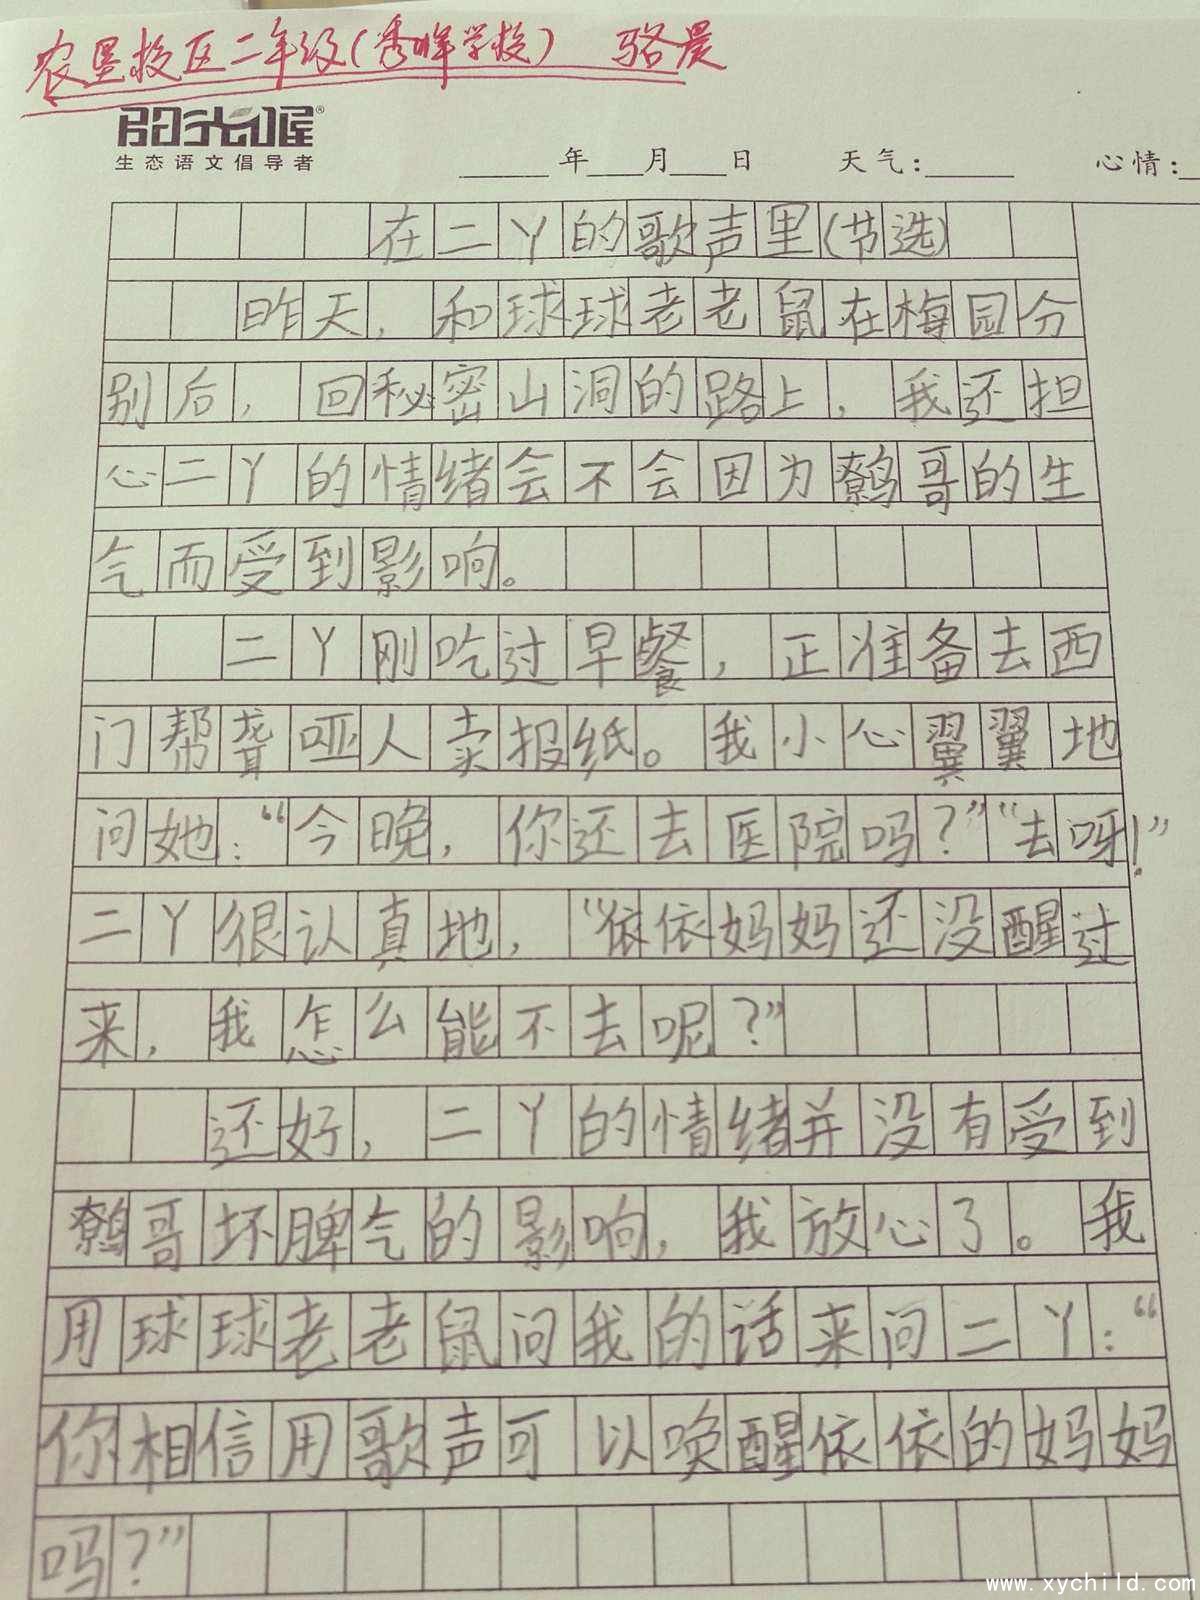 农垦校区二年级(秀峰学校) 骆晨
阳光喔®
生态语文倡导者
年 月 日 天气: 心情:
在二丫的歌声里(节选)
昨天,和球球老老鼠在梅园分
别后,回秘密山洞的路上,我还担
心二丫的情绪会不会因为鹩哥的生
气而受到影响。
二丫刚吃过早餐,正准备去西
门帮聋哑人卖报纸。我小心翼翼地
问她:“今晚,你还去医院吗?”“去呀!”
二丫很认真地,“依依妈妈还没醒过
来,我怎么能不去呢?”
还好,二丫的情绪并没有受到
鹩哥坏脾气的影响,我放心了。我
用球球老老鼠问我的话来问二丫:“
你相信用歌声可以唤醒依依的妈妈
吗?”
www.xychild.com